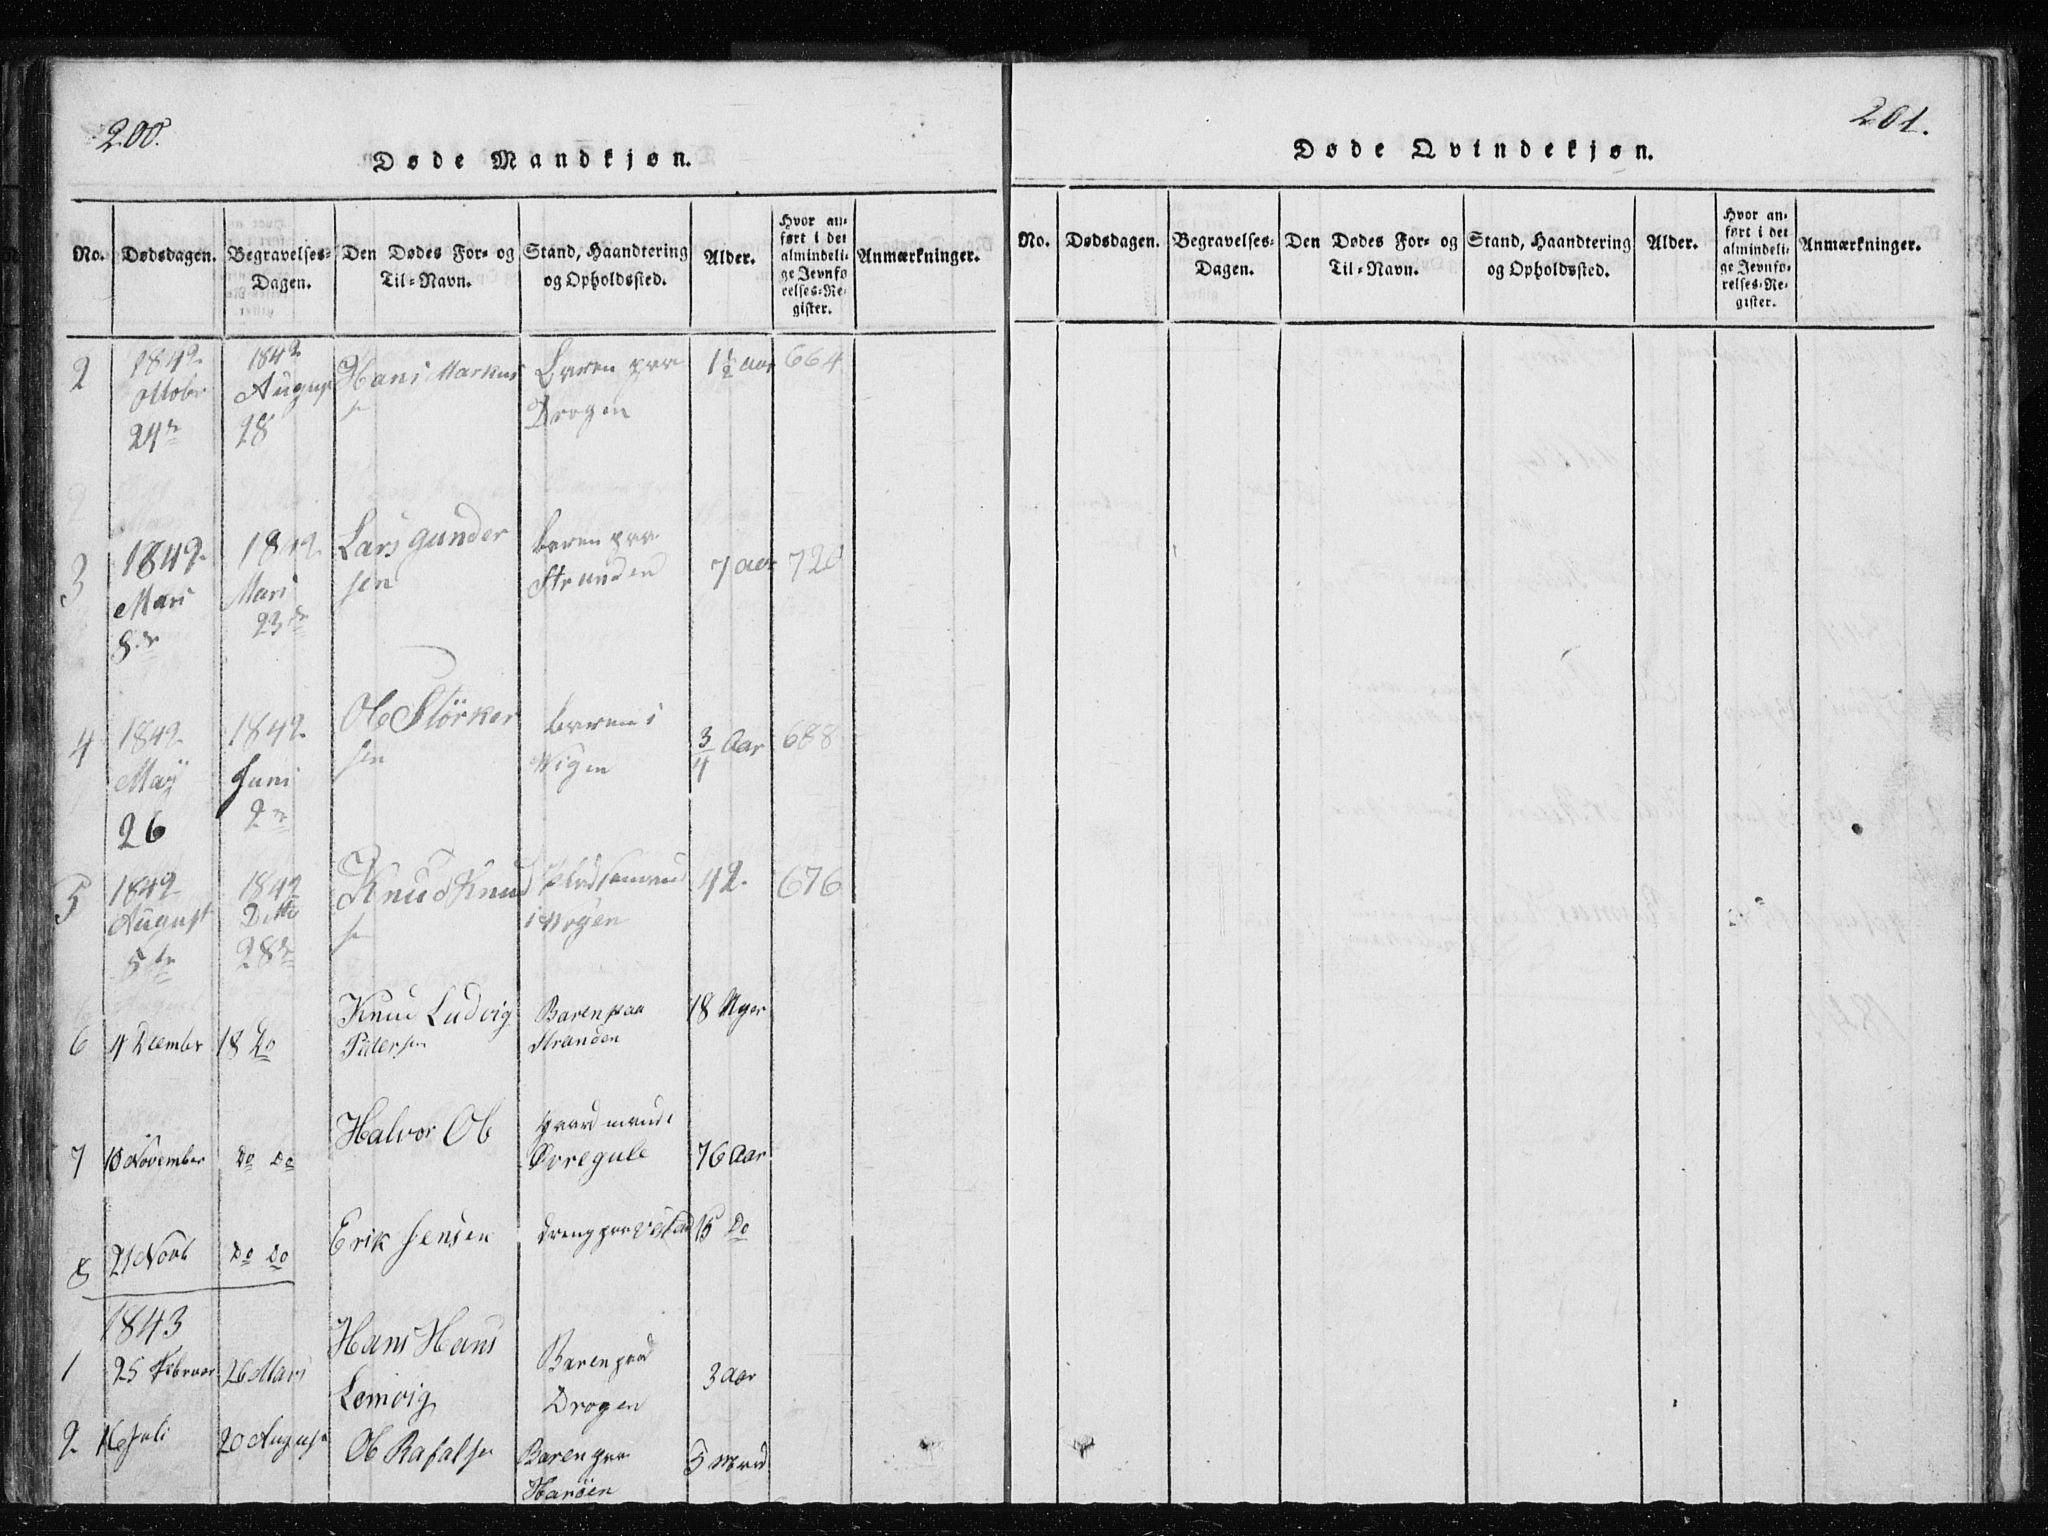 200.
Døde Mandkjøn.
No. Dødsdagen. Begravelses-Dagen. Den Dødes For- og Til-Navn. Stand, Haandtering og Opholdssted. Alder. Hvor anført i det almindelige Jevnførelses-Register. Anmærkninger.
2 1842 1842 Hans Markus Baren paa 1½ aar 664
Octobr August sn Drogen
24de 28
3 1842 1842 Lars Gunder Baren paa 7 aar 720
Mars Mars sen Stranden
8de 23de
4 1842 1842 Ole Störker Baren i 3/4 Aar 688
Maÿ Juni sen Wigen
26 2de
5 1842 1842 Knud Knud Pladsmand 42 676
August Ditto sn i Wogen
5te 28de
6 4 December 18 Do Knud Ludvig Baren paa 18 Uger
Pedersen Stranden
7 18 November Do Do Halvor Ols Gaardmand 76 Aar
8 21 Novb Do Do Erik Jensen Dreng paa 15 Do
1843
1 25 Februar 26 Mars Hans Hans Baren paa 3 Aar
Lemvig Drogen
2 16 Juli 20 August Ole Rafalsn Baren paa 5 Maad
Haröen
201.
Døde Qvindekjøn.
No. Dødsdagen. Begravelses-Dagen. Den Dødes For- og Til-Navn. Stand, Haandtering og Opholdssted. Alder. Hvor anført i det almindelige Jevnførelses-Register. Anmærkninger.